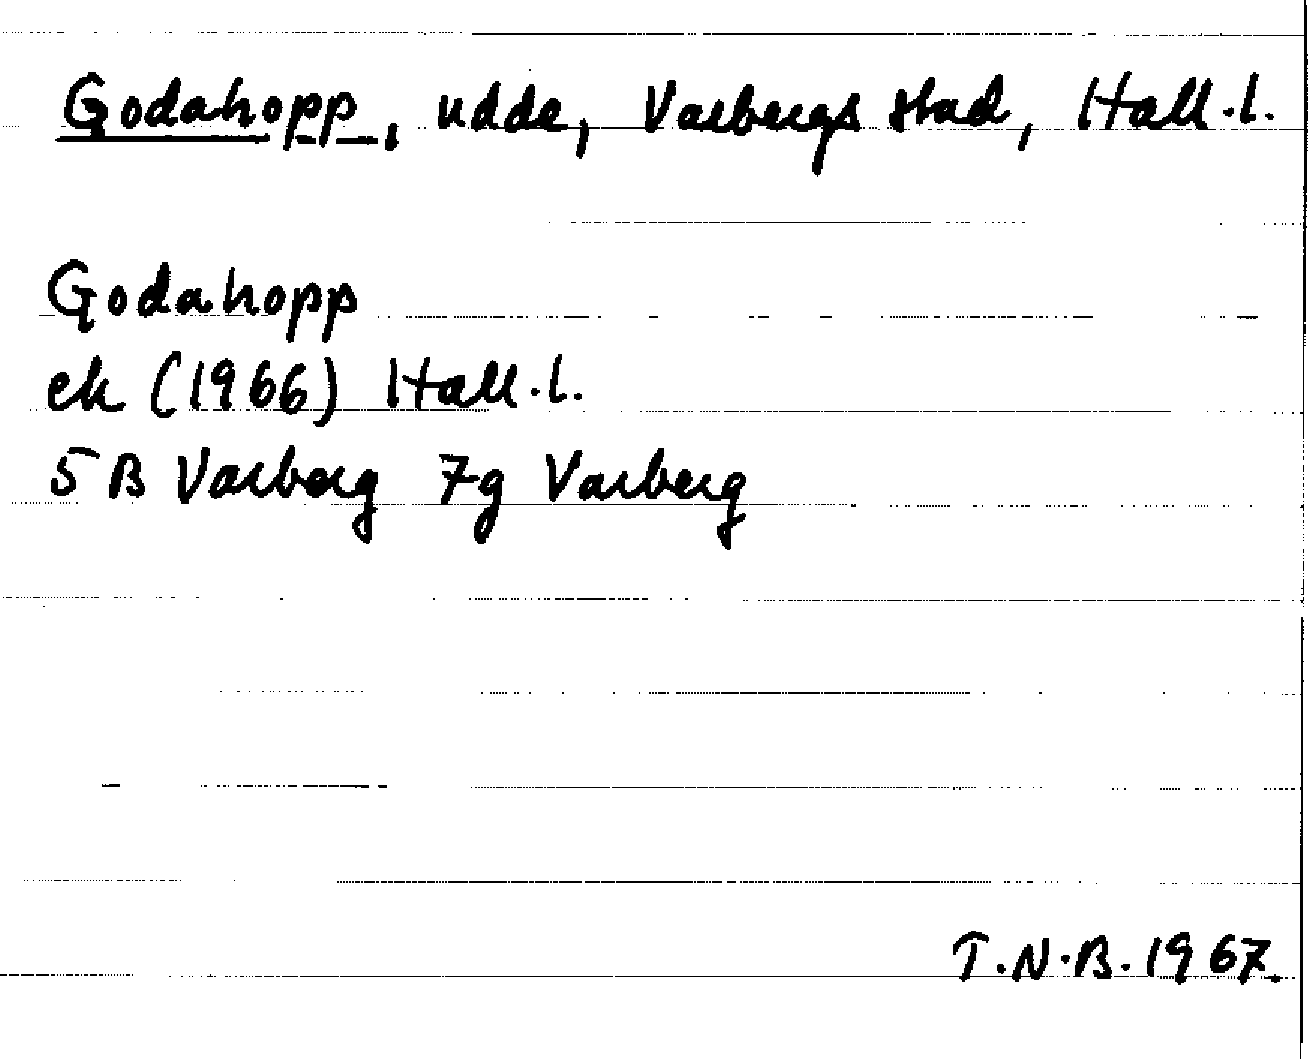 Godahopp, udde, Varbergs stad, Hall.l.
Godahopp
ek (1966) Hall.l.
5B Varberg 7g Varberg
T.N.B. 1967.